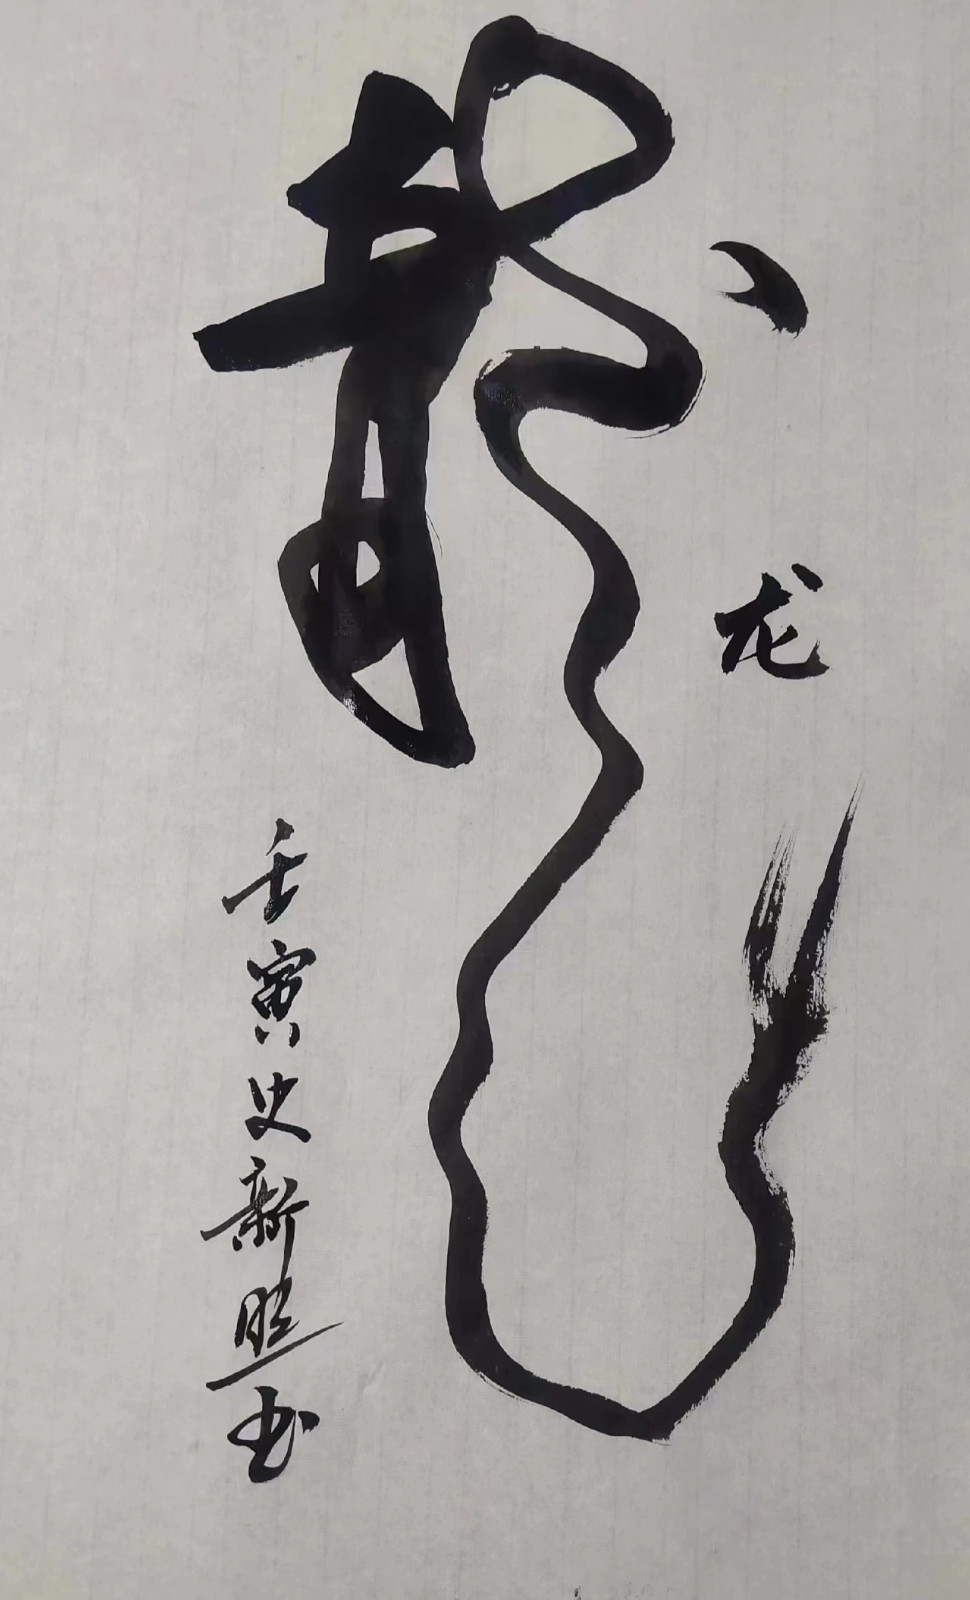 龍
龙
壬寅史新照书